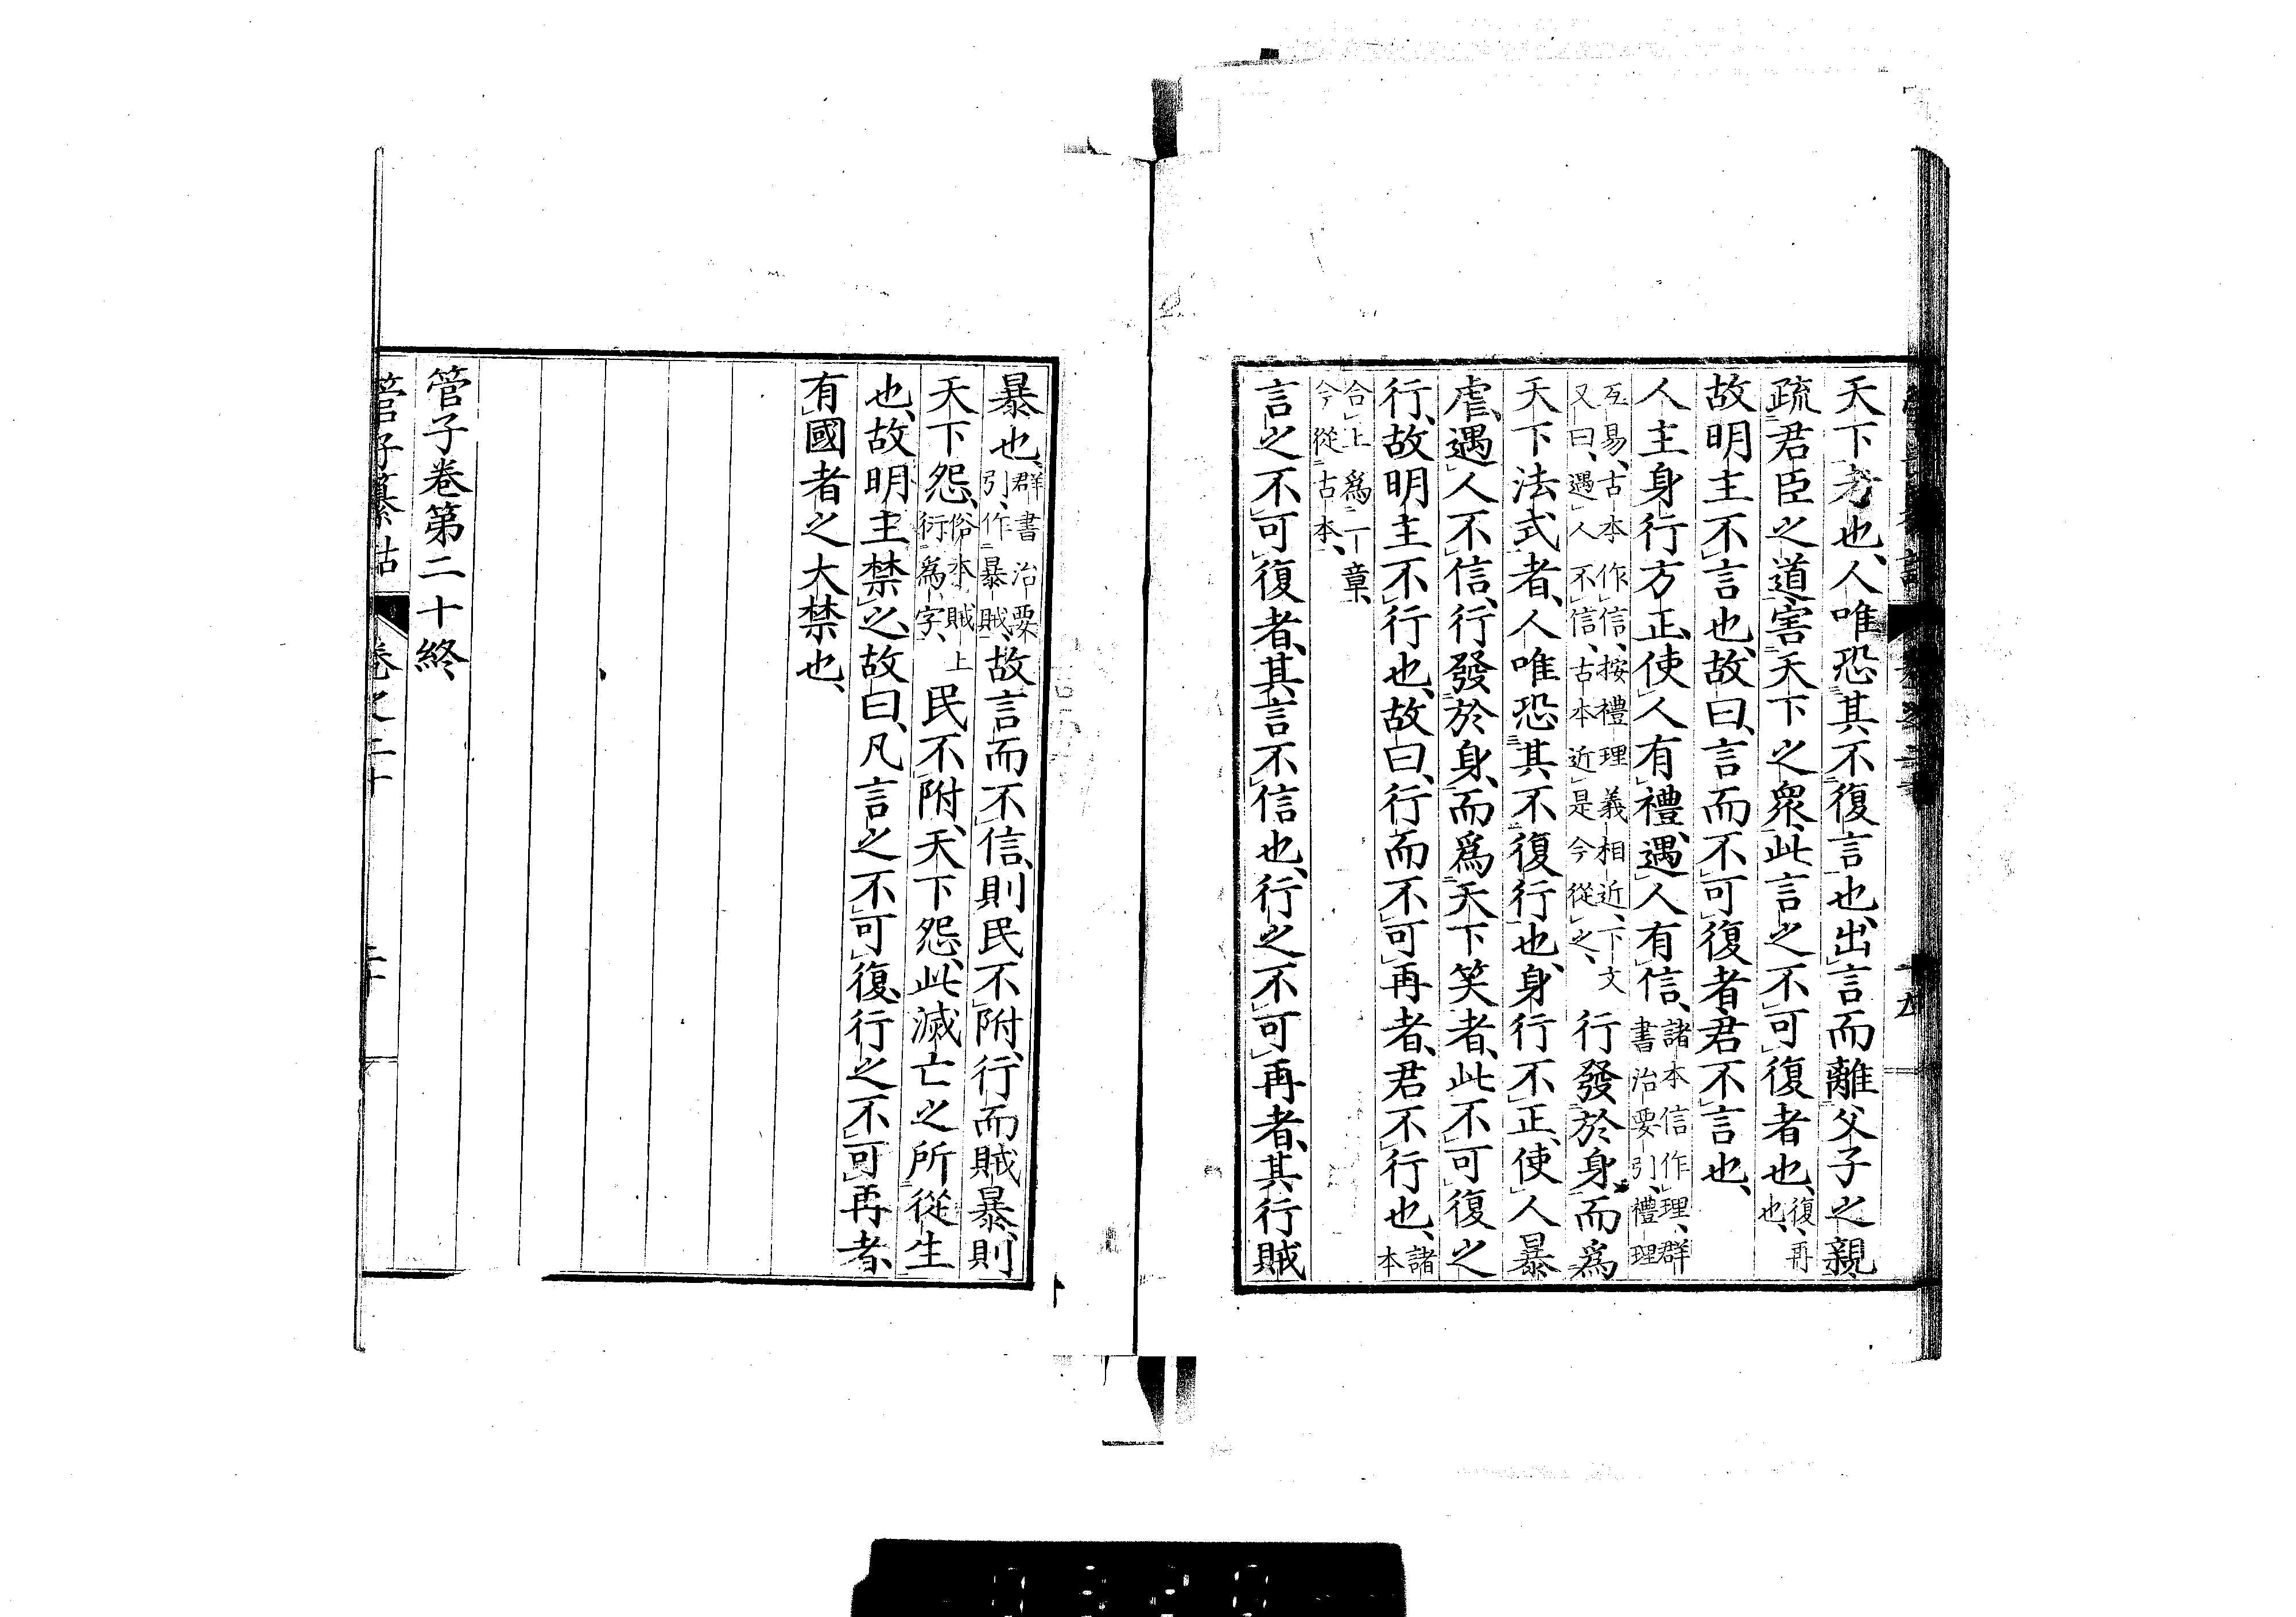 天下者也、人唯恐其不復言也、出言而離父子之親、
疏君臣之道、害天下之衆、此言之不可復者也、復、再也、
故明主不言也、故曰、言而不可復者、君不言也、
人主身行方正、使人有禮、遇人有信、諸本信作理、群書治要引、禮理
互易、古本作信、按禮理義相近、下文又曰、遇人不信、古本近是今從之、行發於身、而爲
天下法式者、人唯恐其不復行也、身行不正、使人暴
虐、遇人不信、行發於身、而爲天下笑者、此不可復之
行、故明主不行也、故曰、行而不可再者、君不行也、諸本
合上爲一章、今從古本、
言之不可復者、其言不信也、行之不可再者、其行賊
暴也、群書治要引、作暴賊、故言而不信、則民不附、行而賊暴、則
天下怨、俗本賊上衍爲字、民不附、天下怨、此滅亡之所從生
也、故明主禁之、故曰、凡言之不可復、行之不可再者、
有國者之大禁也、
管子卷第二十終
管子纂詁 卷之二十 二十